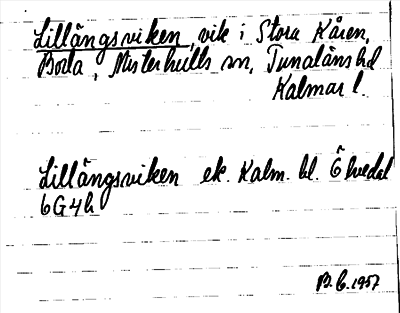 Lillängsviken, vik i Stora Kåren,
Boda, Misterhults sn, Tunaläns hd
Kalmar l.
Lillängsviken ek. Kalm. bl. Ö hvedal
6G4h
B. C. 1957